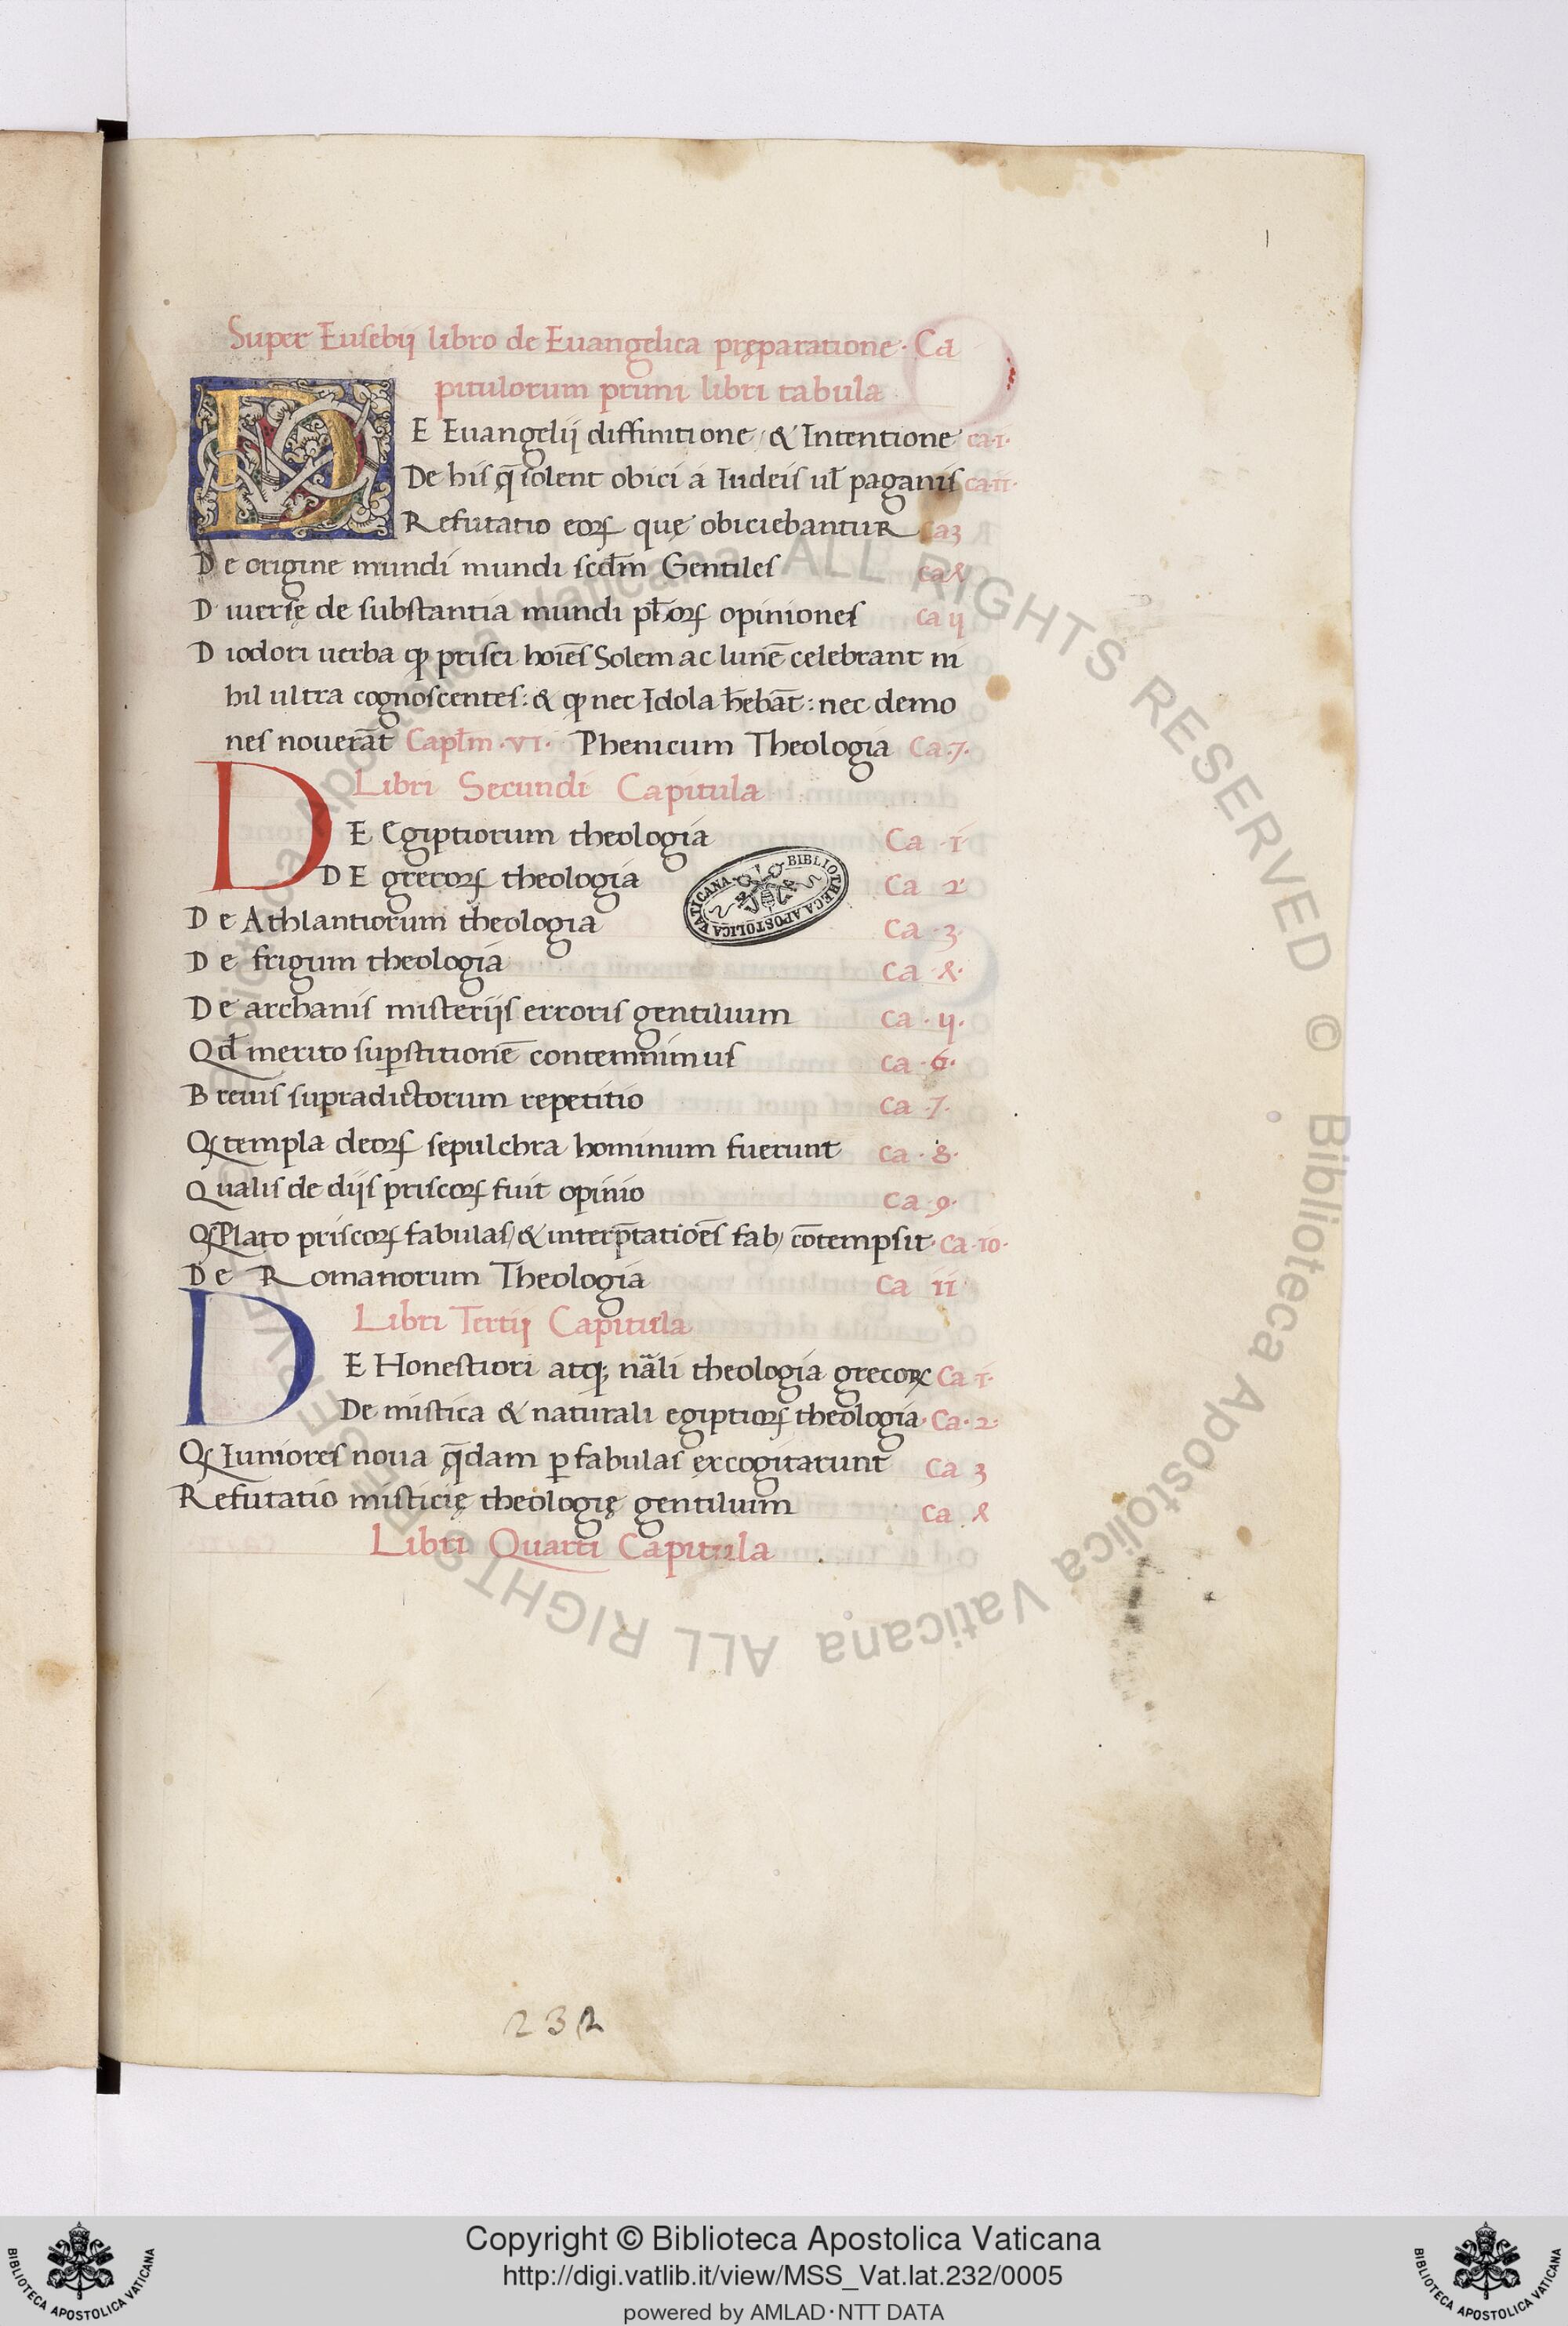 1
Super Eusebij libro de Euangelica pręparatione. Ca
pitulorum primi libri tabula
DE Euangelij diffinitione / & Intentione ca. 1.
De his q̄ solent obici a Iudeis ul̄ paganis ca. ii.
Refutatio eoꝝ quę obiciebantur ca 3
De origine mundi mundi scd̄m Gentiles ca 4
Diuersę de substantia mundi ph̄oꝝ opiniones ca 5
Diodori uerba ꝙ prisci hoīes Solem ac lunē celebrant ni
hil ultra cognoscentes: & ꝙ nec Idola hēbāt: nec demo
nes nouerāt Capl̄m. VI. Phenicum Theologia Ca. 7.
Libri Secundi Capitula
DE Egiptiorum theologia Ca 1
DE grecoꝝ theologia Ca 2
De Athlantiorum theologia Ca. 3
De frigum theologia Ca. 4.
De archanis misterijs erroris gentilium Ca. 5.
Qd̄ merito suꝑstitionē contemnimus Ca. 6.
Breuis supradictorum repetitio Ca. 7.
Qꝫ templa deoꝝ sepulchra hominum fuerunt Ca. 8.
Qualis de dijs priscoꝝ fuit opinio Ca. 9.
Qꝫ Plato priscoꝝ fabulas / & interp̄tatiōes fab / cōtempsit. Ca. 10.
De Romanorum Theologia Ca 11
Libri Tertij Capitula
DE Honestiori atqꝫ nāli theologia grecoꝝ Ca 1.
De mistica & naturali egiptioꝝ theologia. Ca. 2.
Qꝫ Iuniores noua q̄dam ꝑ fabulas excogitarunt Ca 3
Refutatio misticię theologię gentilium Ca. 4
Libri Quarti Capitula
BIBLIOTHECA APOSTOLICA VATICANA
232
© Biblioteca Apostolica Vaticana ALL RIGHTS RESERVED © Biblioteca Apostolica Vaticana ALL RIGHTS RESERVED
Copyright © Biblioteca Apostolica Vaticana
http://digi.vatlib.it/view/MSS_Vat.lat.232/0005
powered by AMLAD · NTT DATA
BIBLIOTECA APOSTOLICA VATICANA
BIBLIOTECA APOSTOLICA VATICANA